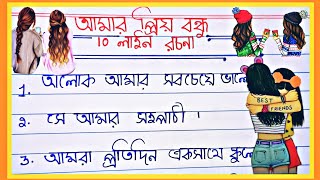 আমার প্রিয় বন্ধু
10 লাইন রচনা
1. আলোক আমার সবচেয়ে ভালো
২. সে আমার সহপাঠী ।
3. আমরা প্রতিদিন একসাথে স্কুলে
BEST
FRIENDS